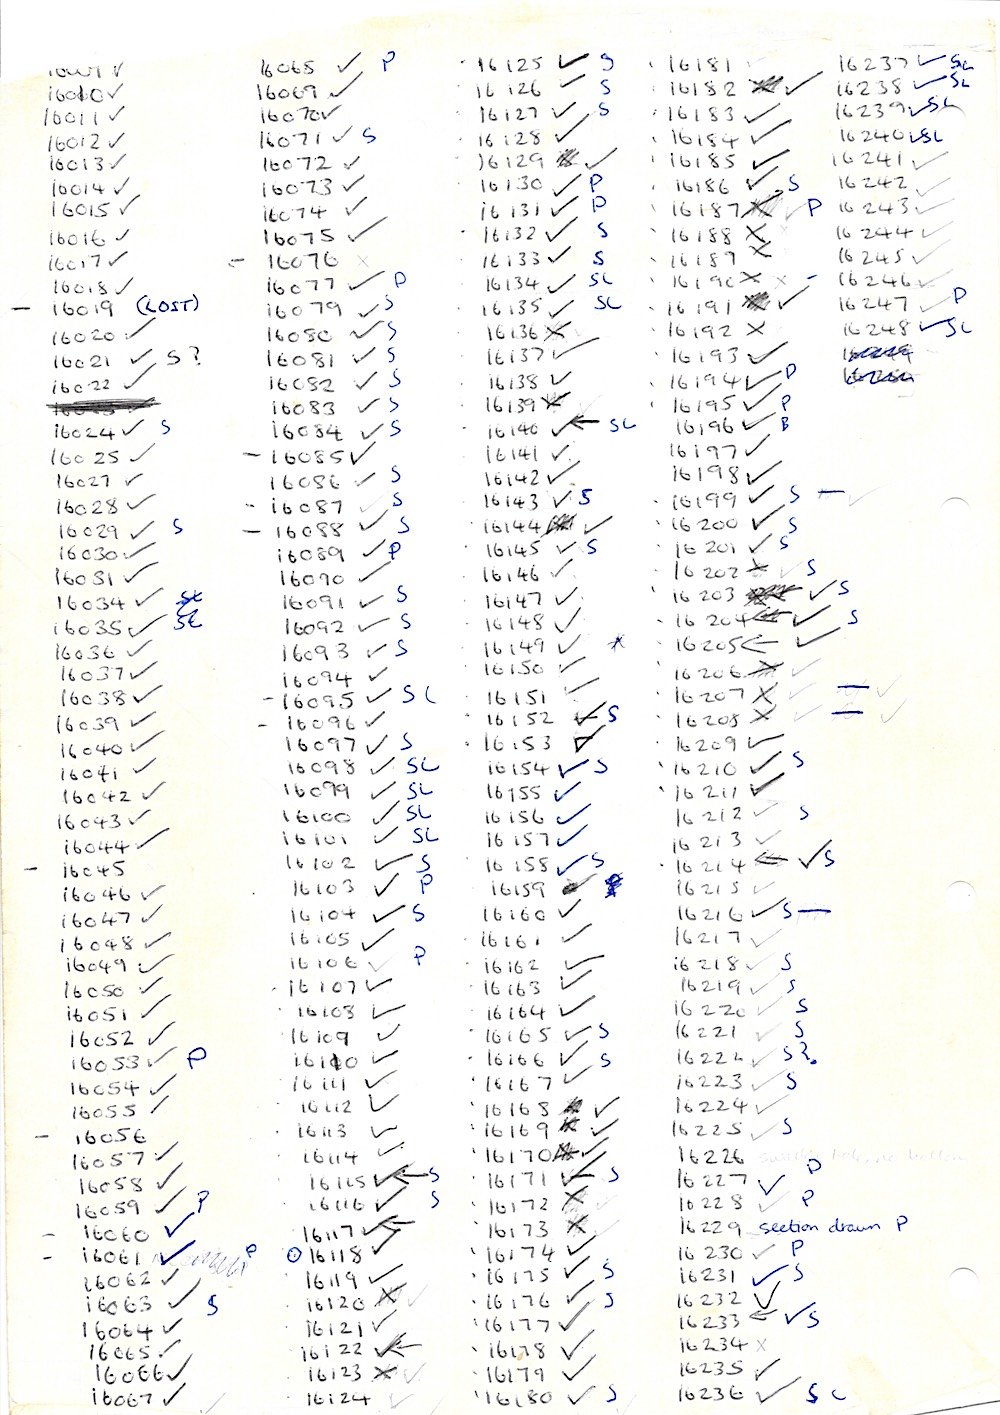 16010 ✓
16011 ✓
16012 ✓
16013 ✓
16014 ✓
16015 ✓
16016 ✓
16017 ✓
16018 ✓
– 16019 (LOST)
16020 ✓
16021 ✓ S?
16022 ✓
16024 ✓ S
16025 ✓
16027 ✓
16028 ✓
16029 ✓ S
16030 ✓
16031 ✓
16034 ✓ SL
16035 ✓ SL
16036 ✓
16037 ✓
16038 ✓
16039 ✓
16040 ✓
16041 ✓
16042 ✓
16043 ✓
16044 ✓
– 16045
16046 ✓
16047 ✓
16048 ✓
16049 ✓
16050 ✓
16051 ✓
16052 ✓
16053 ✓ P
16054 ✓
16055 ✓
– 16056
16057 ✓
16058 ✓
16059 ✓ P
– 16060 ✓
– 16061 ✓ P
16062 ✓
16063 ✓ S
16064 ✓
16065 ✓
16066 ✓
16067 ✓
16068 ✓ P
16069 ✓
16070 ✓
16071 ✓ S
16072 ✓
16073 ✓
16074 ✓
16075 ✓
– 16076 x
16077 ✓ P
16079 ✓ S
16080 ✓ S
16081 ✓ S
16082 ✓ S
16083 ✓ S
16084 ✓ S
– 16085 ✓
16086 ✓ S
– 16087 ✓ S
– 16088 ✓ S
16089 ✓ P
16090 ✓
16091 ✓ S
16092 ✓ S
16093 ✓ S
16094 ✓
– 16095 ✓ SL
– 16096 ✓
16097 ✓ S
16098 ✓ SL
16099 ✓ SL
16100 ✓ SL
16101 ✓ SL
16102 ✓ S
16103 ✓ P
16104 ✓ S
16105 ✓
16106 ✓ P
16107 ✓
16108 ✓
16109 ✓
16110 ✓
16111 ✓
16112 ✓
16113 ✓
16114 ✓
16115 ✓ ← S
16116 ✓ S
16117 ✓ ←
16118 ✓
16119 ✓
16120 x ✓
16121 ✓
16122 ✓ ←
16123 x ✓
16124 ✓
16125 ✓ S
16126 ✓ S
16127 ✓ S
16128 ✓
16129 ✓
16130 ✓ P
16131 ✓ P
16132 ✓ S
16133 ✓ S
16134 ✓ SL
16135 ✓ SL
16136 x
16137 ✓
16138 ✓
16139 x
16140 ✓ ← SL
16141 ✓
16142 ✓
16143 ✓ S
16144 ✓
16145 ✓ S
16146 ✓
16147 ✓
16148 ✓
16149 ✓
16150 ✓
16151 ✓
16152 ✓ S
16153 ✓
16154 ✓ S
16155 ✓
16156 ✓
16157 ✓
16158 ✓ S
16159 ✓
16160 ✓
16161 ✓
16162 ✓
16163 ✓
16164 ✓
16165 ✓ S
16166 ✓ S
16167 ✓
16168 ✓
16169 ✓
16170 ✓
16171 ✓ S
16172 x
16173 x
16174 ✓
16175 ✓ S
16176 ✓ S
16177 ✓
16178 ✓
16179 ✓
16180 ✓ S
16181
16182 ✓
16183 ✓
16184 ✓
16185 ✓
16186 ✓ S
16187 ✓ P
16188 x
16189 x
16190 x x –
16191 ✓
16192 x
16193 ✓
16194 ✓ P
16195 ✓ P
16196 ✓ B
16197 ✓
16198 ✓
16199 ✓ S –
16200 ✓ S
16201 ✓ S
16202 x S
16203 ✓ S
16204 ← ✓ S
16205 ← ✓
16206 x ✓
16207 x ✓ –
16208 x ✓ –
16209 ✓
16210 ✓ S
16211 ✓
16212 ✓ S
16213 ✓
16214 ← ✓ S
16215 ✓
16216 ✓ S –
16217 ✓
16218 ✓ S
16219 ✓ S
16220 ✓ S
16221 ✓ S
16222 ✓ S?
16223 ✓ S
16224 ✓
16225 ✓ S
16226
16227 ✓ P
16228 ✓ P
16229 section drawn P
16230 ✓ P
16231 ✓ S
16232 ✓
16233 ← ✓ S
16234 x
16235 ✓
16236 ✓ SL
16237 ✓ SL
16238 ✓ SL
16239 ✓ SL
16240 ✓ SL
16241 ✓
16242 ✓
16243 ✓
16244 ✓
16245 ✓
16246 ✓
16247 ✓ P
16248 ✓ SL